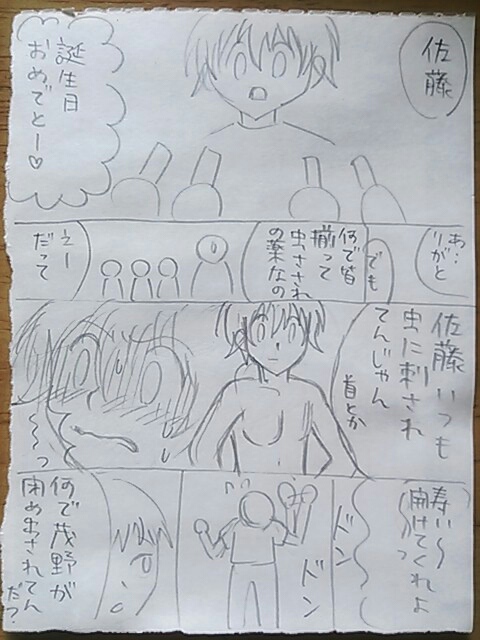 佐藤
誕生日
おめでとー♡
あ…
りがと
でも
何で皆
揃って
虫さされ
の薬なの
えー
だって
佐藤いつも
虫に刺され
てんじゃん
首とか
〜〜っ
寿い〜
開けてくれよ
〜〜っ
ドン
ドン
何で茂野が
閉め出されてん
だ?